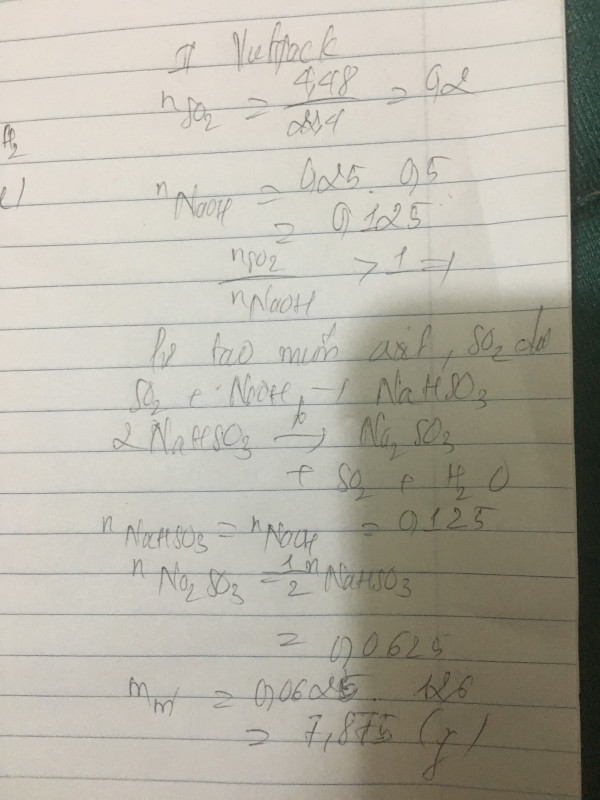 H2
e)
nSO2 = 4,48 / 22,4 = 0,2
nNaOH = 0,25 . 0,5
= 0,125
nSO2 / nNaOH > 1 =>
tạo muối axit, SO2 dư
SO2 + NaOH → NaHSO3
2 NaHSO3 →(t°) Na2SO3
+ SO2 + H2O
nNaHSO3 = nNaOH = 0,125
nNa2SO3 = 1/2 nNaHSO3
= 0,0625
mm' = 0,0625 . 126
= 7,875 (g)